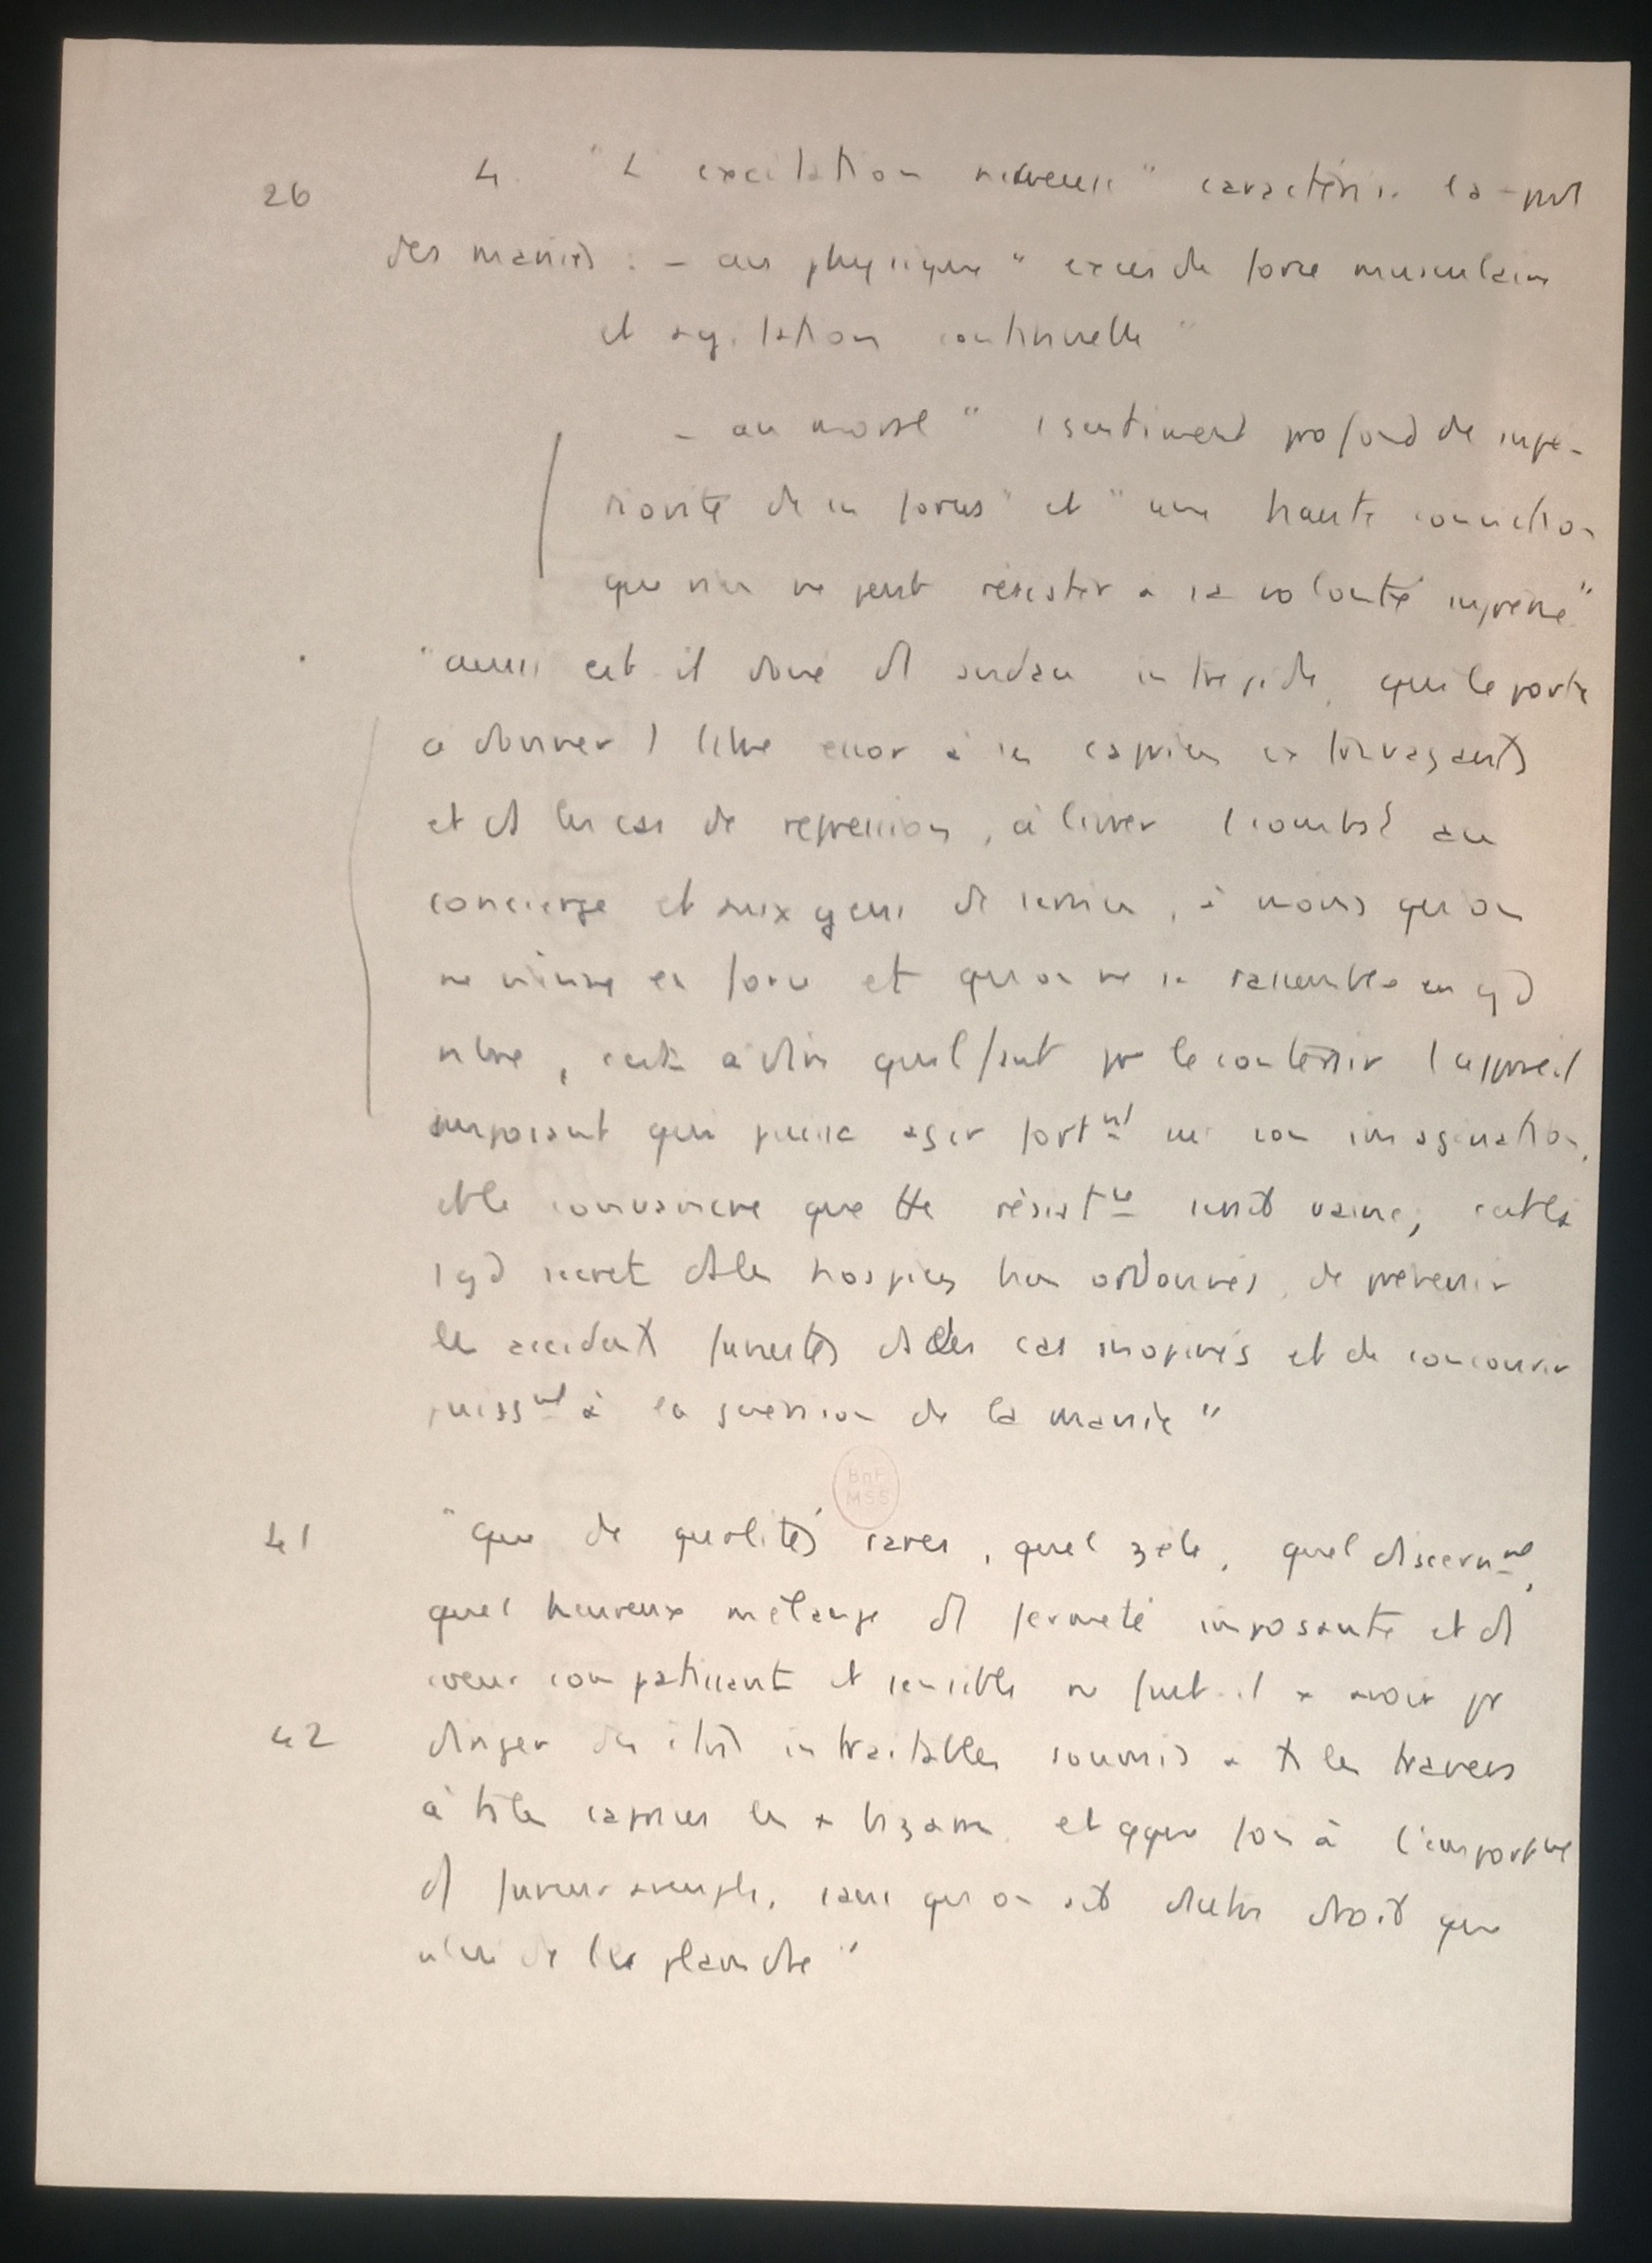 26 4. "L'excitation nerveuse" caractérise la plpart
des manies : - au physique "excès de force musculaire
et agitation continuelle"
- au moral "1 sentiment profond de supé-
riorité de ses forces" et "une haute conviction
que rien ne peut résister à sa volonté suprême"
"aussi est-il doué d' audace intrépide, qui le porte
à donner 1 libre essor à ses caprices extravagants
et ds les cas de repression, à livrer 1 combat au
concierge et aux gens de service, à moins qu'on
ne vienne en force et qu'on ne se rassemble en gd
nbre, c'est à dire qu'il faut pr le contenir 1 appareil
imposant qui puisse agir fortnt sur son imagination,
et le convaincre que tte résistce serait vaine; c'est là
1 gd secret ds les hospices bien ordonnés, de prévenir
les accidents funestes ds des cas inopinés et de concourir
puissnt à la guérison de la manie"
BnF
MSS
41 "Que de qualités rares, quel zèle, quel discernnt,
quel heureux mélange d' fermeté imposante et d'
coeur compatissant et sensible ne faut-il avoir pr
42 diriger des êtres intraitables soumis à ts les travers
à ts les caprices les + bizarres et qque fois à l'emportnt
d' fureur aveugle, sans qu'on ait d'autre droit que
celui de les plaindre"